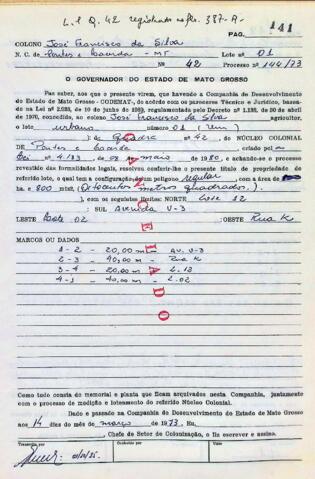 L. 1 Q. 42 registrado a fls. 387-A-
PAG. 141
COLONO José Francisco da Silva
N. C. de Pontes e Lacerda - MT Lote nº 01
Nº 42 Processo nº 144/73
O GOVERNADOR DO ESTADO DE MATO GROSSO
Faz saber, aos que o presente virem, que havendo a Companhia de Desenvolvimento
do Estado de Mato Grosso - CODEMAT-, de acôrdo com os pareceres Técnico e Jurídico, baseados
na Lei nº 2.293, de 10 de junho de 1969, regulamentada pelo Decreto nº 1.138, de 20 de abril
de 1970, concedido ao colono José Francisco da Silva agricultor,
o lote urbano número 01 (um)
da Quadra nº 42, DO NÚCLEO COLONIAL
de Pontes e Lacerda criado pela
Lei nº 4/73 de 08 de maio 1980, e achando-se o processo
revestido das formalidades legais, resolveu conferir-lhe o presente título de propriedade do
referido lote, o qual tem a configuração de um polígono regular com a área de
ha. e 800 mts2. (Oitocentos metros quadrados.)
), com os seguintes limites: NORTE Lote 12
SUL Avenida V-3
LESTE Lote 02 OESTE Rua K
MARCOS OU DADOS
1 - 2 - 20,00 m - Av. V-3
2 - 3 - 40,00 m - Rua K
3 - 4 - 20,00 m - L. 12
4 - 1 - 40,00 m - L. 02
CANCELADO
Como tudo consta do memorial e planta que ficam arquivados nesta Companhia, juntamente
com o processo de medição e loteamento do referido Núcleo Colonial.
Dado e passado na Companhia de Desenvolvimento do Estado de Mato Grosso
aos 14 dias do mês de março de 1973. Eu,
, Chefe do Setor de Colonização, o fiz escrever e assino.
Transcrito por Conferido Valor